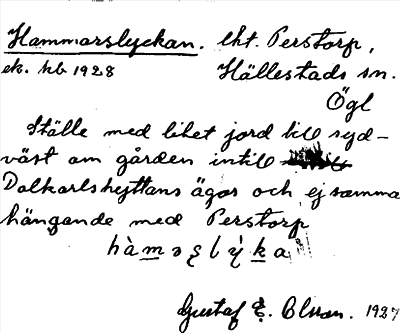 Hammarslyckan. lht. Perstorp,
ek. kb 1928 Hällestads sn.
Ögl
Ställe med litet jord till syd-
väst om gården intill
Dalkarlshyttans ägor och ej samma
hängande med Perstorp
Gustaf E. Olson. 1927